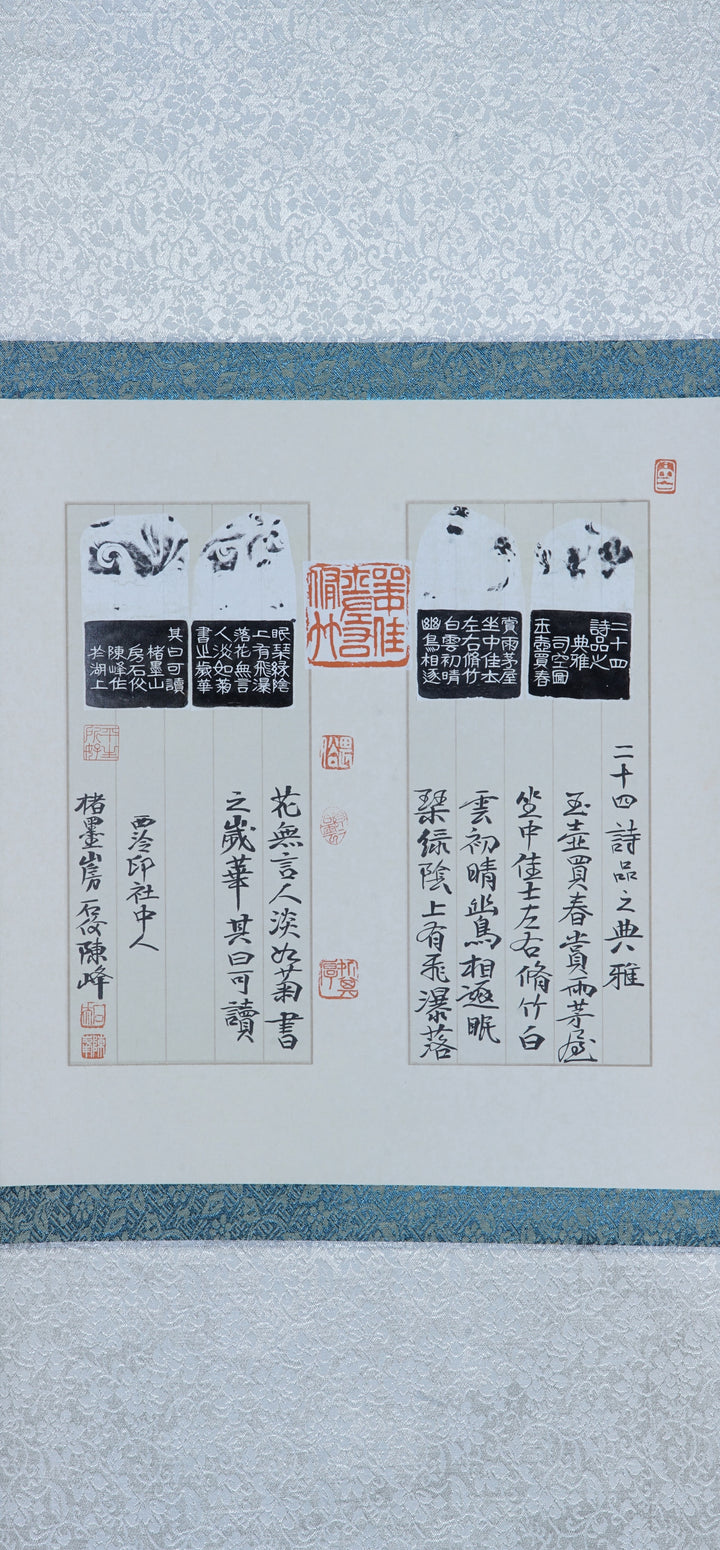 二十四
詩品之
典雅
司空圖
玉壺買春
賞雨茅屋
坐中佳士
左右脩竹
白雲初晴
幽鳥相逐
坐中佳
士左右
脩竹
眠琴綠陰
上有飛瀑
落花無言
人淡如菊
書之歲華
其曰可讀
楮墨山
房石
陳峰作
於湖上
二十四詩品之典雅
玉壺買春賞雨茅屋
坐中佳士左右脩竹白
雲初晴幽鳥相逐眠
琹綠陰上有飛瀑落
花無言人淡如菊書
之歲華其曰可讀
西泠印社中人
楮墨山房石陳峰
平生
所好